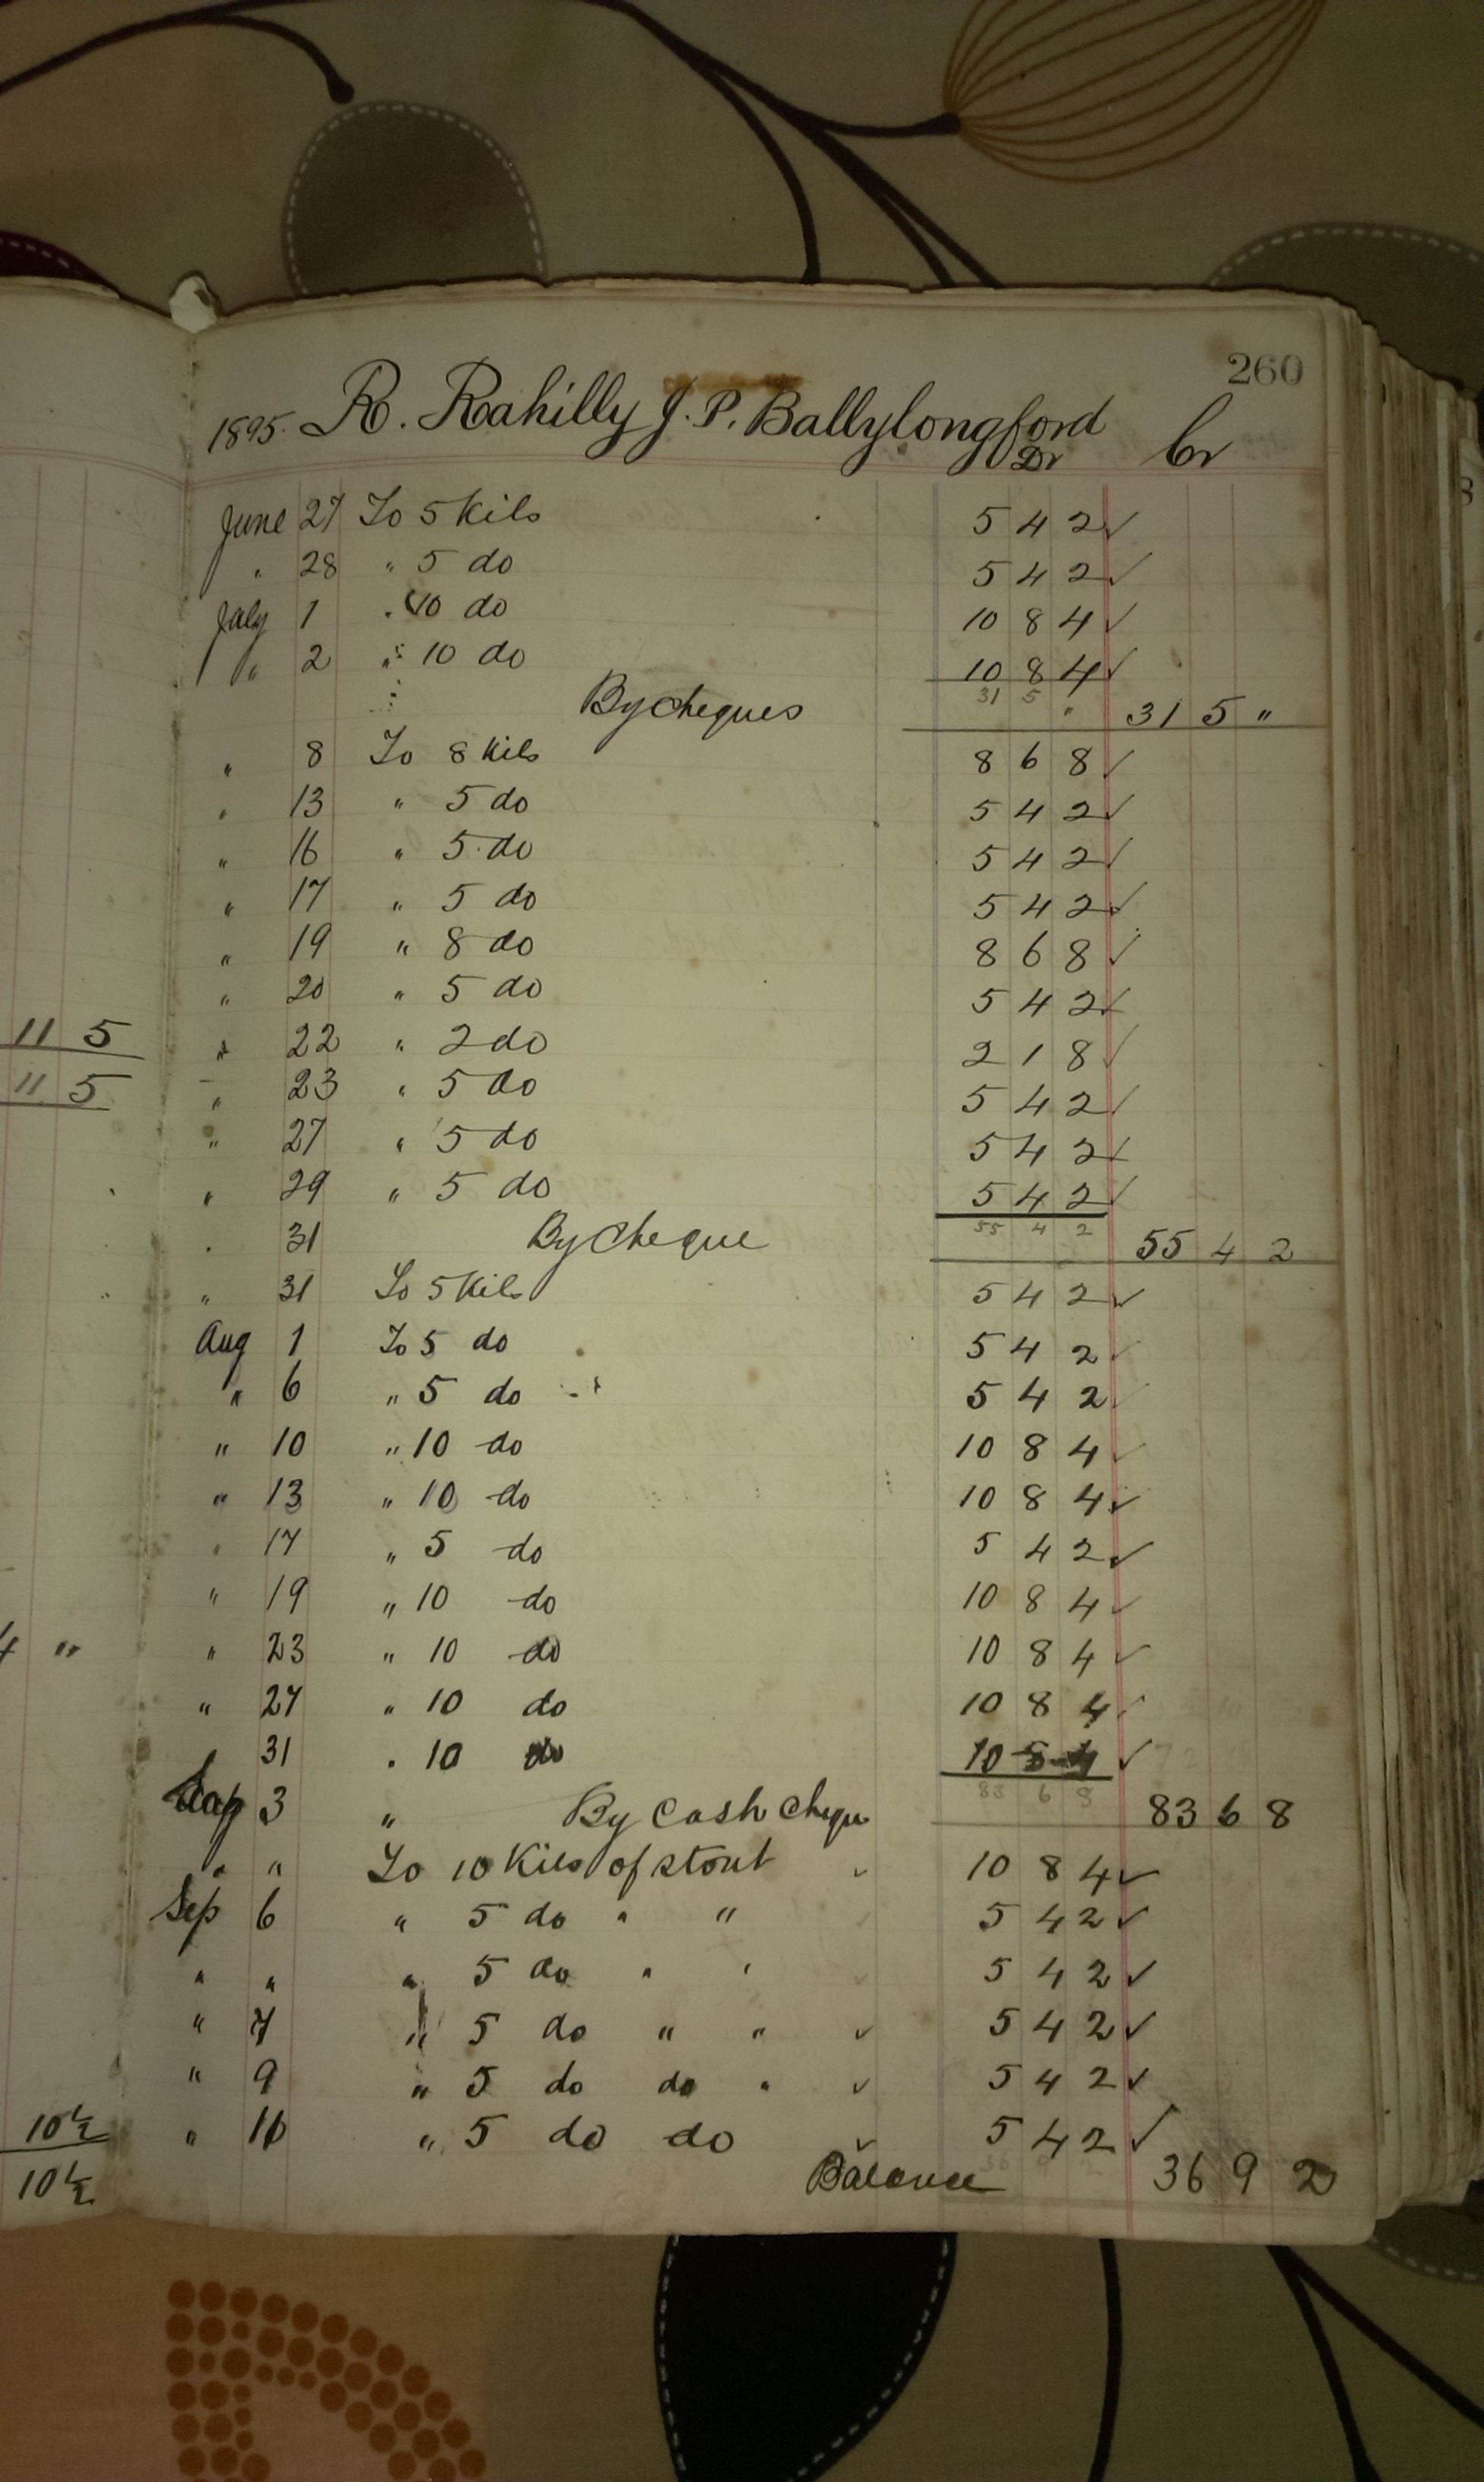 260
1895. R. Rahilly J. P. Ballylongford
Dr Cr
June 27 To 5 Kils 5 4 2 ✓
" 28 " 5 do 5 4 2 ✓
July 1 " 10 do 10 8 4 ✓
" 2 " 10 do 10 8 4 ✓
31 5 "
By cheques 31 5 "
" 8 To 8 Kils 8 6 8 ✓
" 13 " 5 do 5 4 2 ✓
" 16 " 5 do 5 4 2 ✓
" 17 " 5 do 5 4 2 ✓
" 19 " 8 do 8 6 8 ✓
" 20 " 5 do 5 4 2 ✓
" 22 " 2 do 2 1 8 ✓
" 23 " 5 do 5 4 2 ✓
" 27 " 5 do 5 4 2 ✓
" 29 " 5 do 5 4 2 ✓
55 4 2
" 31 By Cheque 55 4 2
" 31 To 5 Kils 5 4 2 ✓
Aug 1 To 5 do 5 4 2 ✓
" 6 " 5 do 5 4 2 ✓
" 10 " 10 do 10 8 4 ✓
" 13 " 10 do 10 8 4 ✓
" 17 " 5 do 5 4 2 ✓
" 19 " 10 do 10 8 4 ✓
" 23 " 10 do 10 8 4 ✓
" 27 " 10 do 10 8 4 ✓
31 " 10 do 10 8 4 ✓
83 6 8
Sep 3 " By Cash Cheque 83 6 8
" " To 10 Kils of stout ✓ 10 8 4 ✓
Sep 6 " 5 do " " ✓ 5 4 2 ✓
" " " 5 do " " ✓ 5 4 2 ✓
" 7 " 5 do " " ✓ 5 4 2 ✓
" 9 " 5 do do " ✓ 5 4 2 ✓
" " 5 do do ✓ 5 4 2 ✓
Balance 36 9 2
11 5
11 5
4 "
10½
10½